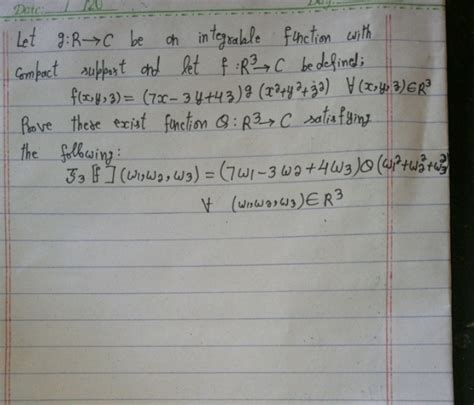 Date: / /20
Let g:R→C be an integrable function with
compact support and let f:R³→C be defined;
f(x,y,z) = (7x-3y+4z)g(x²+y²+z²) ∀(x,y,z)∈R³
Prove there exist function Q:R³→C satisfying
the following:
F₃[f](ω1,ω2,ω3) = (7ω1-3ω2+4ω3)Q(ω1²+ω2²+ω3²)
∀ (ω1,ω2,ω3)∈R³